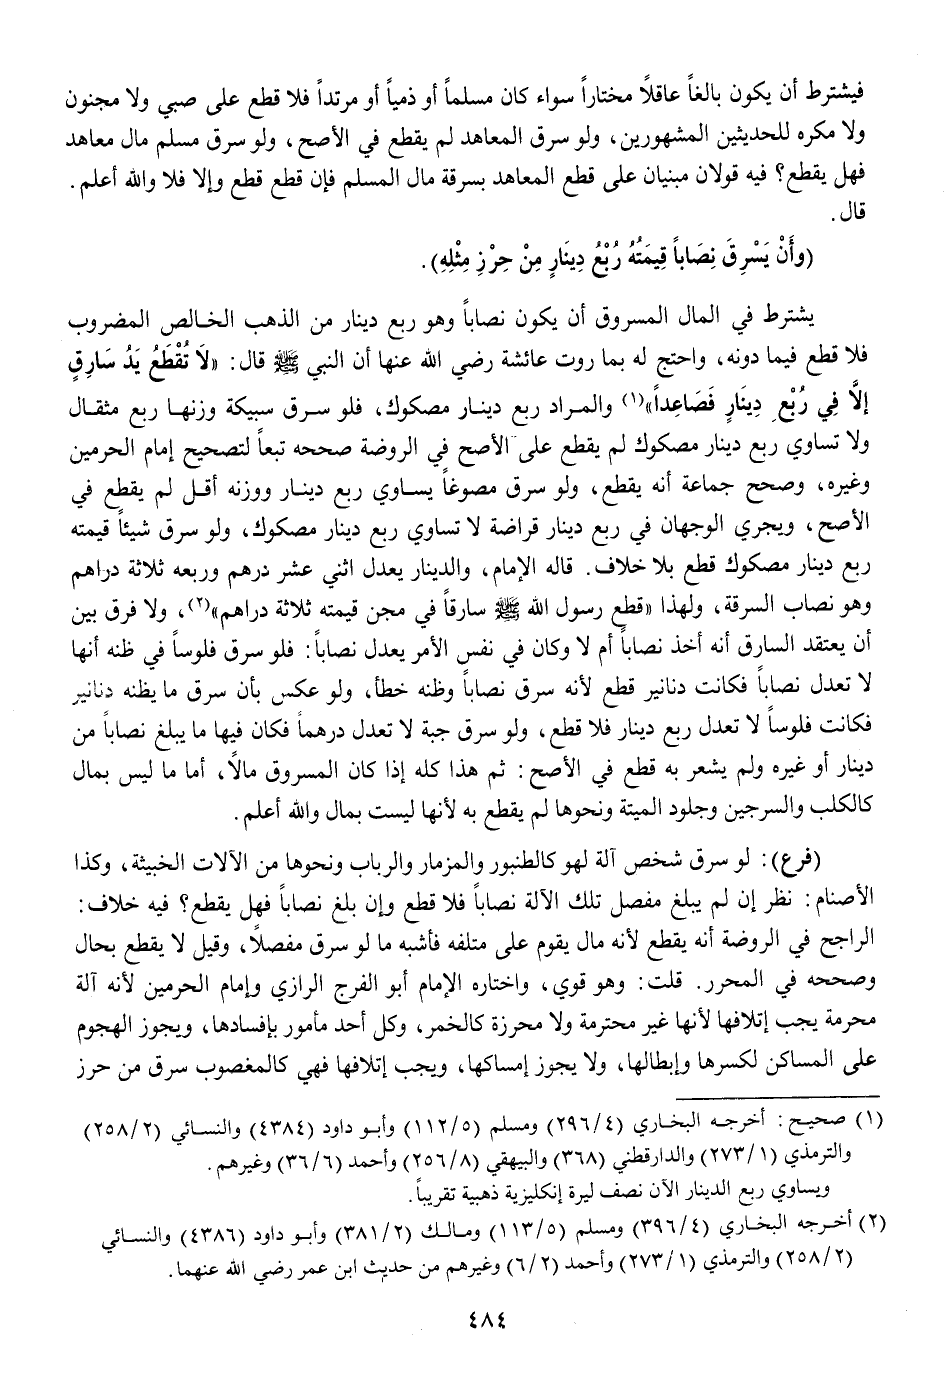 فيشترط أن يكون بالغاً عاقلاً مختاراً سواء كان مسلماً أو ذمياً أو مرتداً فلا قطع على صبي ولا مجنون
ولا مكره للحديثين المشهورين، ولو سرق المعاهد لم يقطع في الأصح، ولو سرق مسلم مال معاهد
فهل يقطع؟ فيه قولان مبنيان على قطع المعاهد بسرقة مال المسلم فإن قطع قطع وإلا فلا والله أعلم.
قال.
(وأَنْ يَسْرِقَ نِصَاباً قِيمَتُهُ رُبْعُ دِينَارٍ مِنْ حِرْزِ مِثْلِهِ).
يشترط في المال المسروق أن يكون نصاباً وهو ربع دينار من الذهب الخالص المضروب
فلا قطع فيما دونه، واحتج له بما روت عائشة رضي الله عنها أن النبي ﷺ قال: «لَا تُقْطَعُ يَدُ سَارِقٍ
إلَّا فِي رُبْعِ دِينَارٍ فَصَاعِداً»(١) والمراد ربع دينار مصكوك، فلو سرق سبيكة وزنها ربع مثقال
ولا تساوي ربع دينار مصكوك لم يقطع على الأصح في الروضة صححه تبعاً لتصحيح إمام الحرمين
وغيره، وصحح جماعة أنه يقطع، ولو سرق مصوغاً يساوي ربع دينار ووزنه أقل لم يقطع في
الأصح، ويجري الوجهان في ربع دينار قراضة لا تساوي ربع دينار مصكوك، ولو سرق شيئاً قيمته
ربع دينار مصكوك قطع بلا خلاف. قاله الإمام، والدينار يعدل اثني عشر درهم وربعه ثلاثة دراهم
وهو نصاب السرقة، ولهذا «قطع رسول الله ﷺ سارقاً في مجن قيمته ثلاثة دراهم»(٢)، ولا فرق بين
أن يعتقد السارق أنه أخذ نصاباً أم لا وكان في نفس الأمر يعدل نصاباً: فلو سرق فلوساً في ظنه أنها
لا تعدل نصاباً فكانت دنانير قطع لأنه سرق نصاباً وظنه خطأ، ولو عكس بأن سرق ما يظنه دنانير
فكانت فلوساً لا تعدل ربع دينار فلا قطع، ولو سرق جبة لا تعدل درهماً فكان فيها ما يبلغ نصاباً من
دينار أو غيره ولم يشعر به قطع في الأصح: ثم هذا كله إذا كان المسروق مالاً، أما ما ليس بمال
كالكلب والسرجين وجلود الميتة ونحوها لم يقطع به لأنها ليست بمال والله أعلم.
(فرع): لو سرق شخص آلة لهو كالطنبور والمزمار والرباب ونحوها من الآلات الخبيثة، وكذا
الأصنام: نظر إن لم يبلغ مفصل تلك الآلة نصاباً فلا قطع وإن بلغ نصاباً فهل يقطع؟ فيه خلاف:
الراجح في الروضة أنه يقطع لأنه مال يقوم على متلفه فأشبه ما لو سرق مفصلاً، وقيل لا يقطع بحال
وصححه في المحرر. قلت: وهو قوي، واختاره الإمام أبو الفرج الرازي وإمام الحرمين لأنه آلة
محرمة يجب إتلافها لأنها غير محترمة ولا محرزة كالخمر، وكل أحد مأمور بإفسادها، ويجوز الهجوم
على المساكن لكسرها وإبطالها، ولا يجوز إمساكها، ويجب إتلافها فهي كالمغصوب سرق من حرز
(١) صحيح: أخرجه البخاري (٢٩٦/٤) ومسلم (١١٢/٥) وأبو داود (٤٣٨٤) والنسائي (٢٥٨/٢)
والترمذي (٢٧٣/١) والدارقطني (٣٦٨) والبيهقي (٢٥٦/٨) وأحمد (٣٦/٦) وغيرهم.
ويساوي ربع الدينار الآن نصف ليرة إنكليزية ذهبية تقريباً.
(٢) أخرجه البخاري (٣٩٦/٤) ومسلم (١١٣/٥) ومالك (٣٨١/٢) وأبو داود (٤٣٨٦) والنسائي
(٢٥٨/٢) والترمذي (٢٧٣/١) وأحمد (٦/٢) وغيرهم من حديث ابن عمر رضي الله عنهما.
٤٨٤